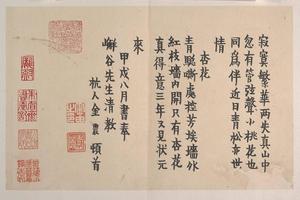 寂寞繁華兩失真山中
忽有管絃聲小桃花也
同為伴近日青松亦世
情
杏花
青驄嘶處控芳埃墻外
紅枝墻內開只有杏花
真得意三年又見狀元
來
甲戌八月書奉
嶰谷先生清教
杭人金農頓首